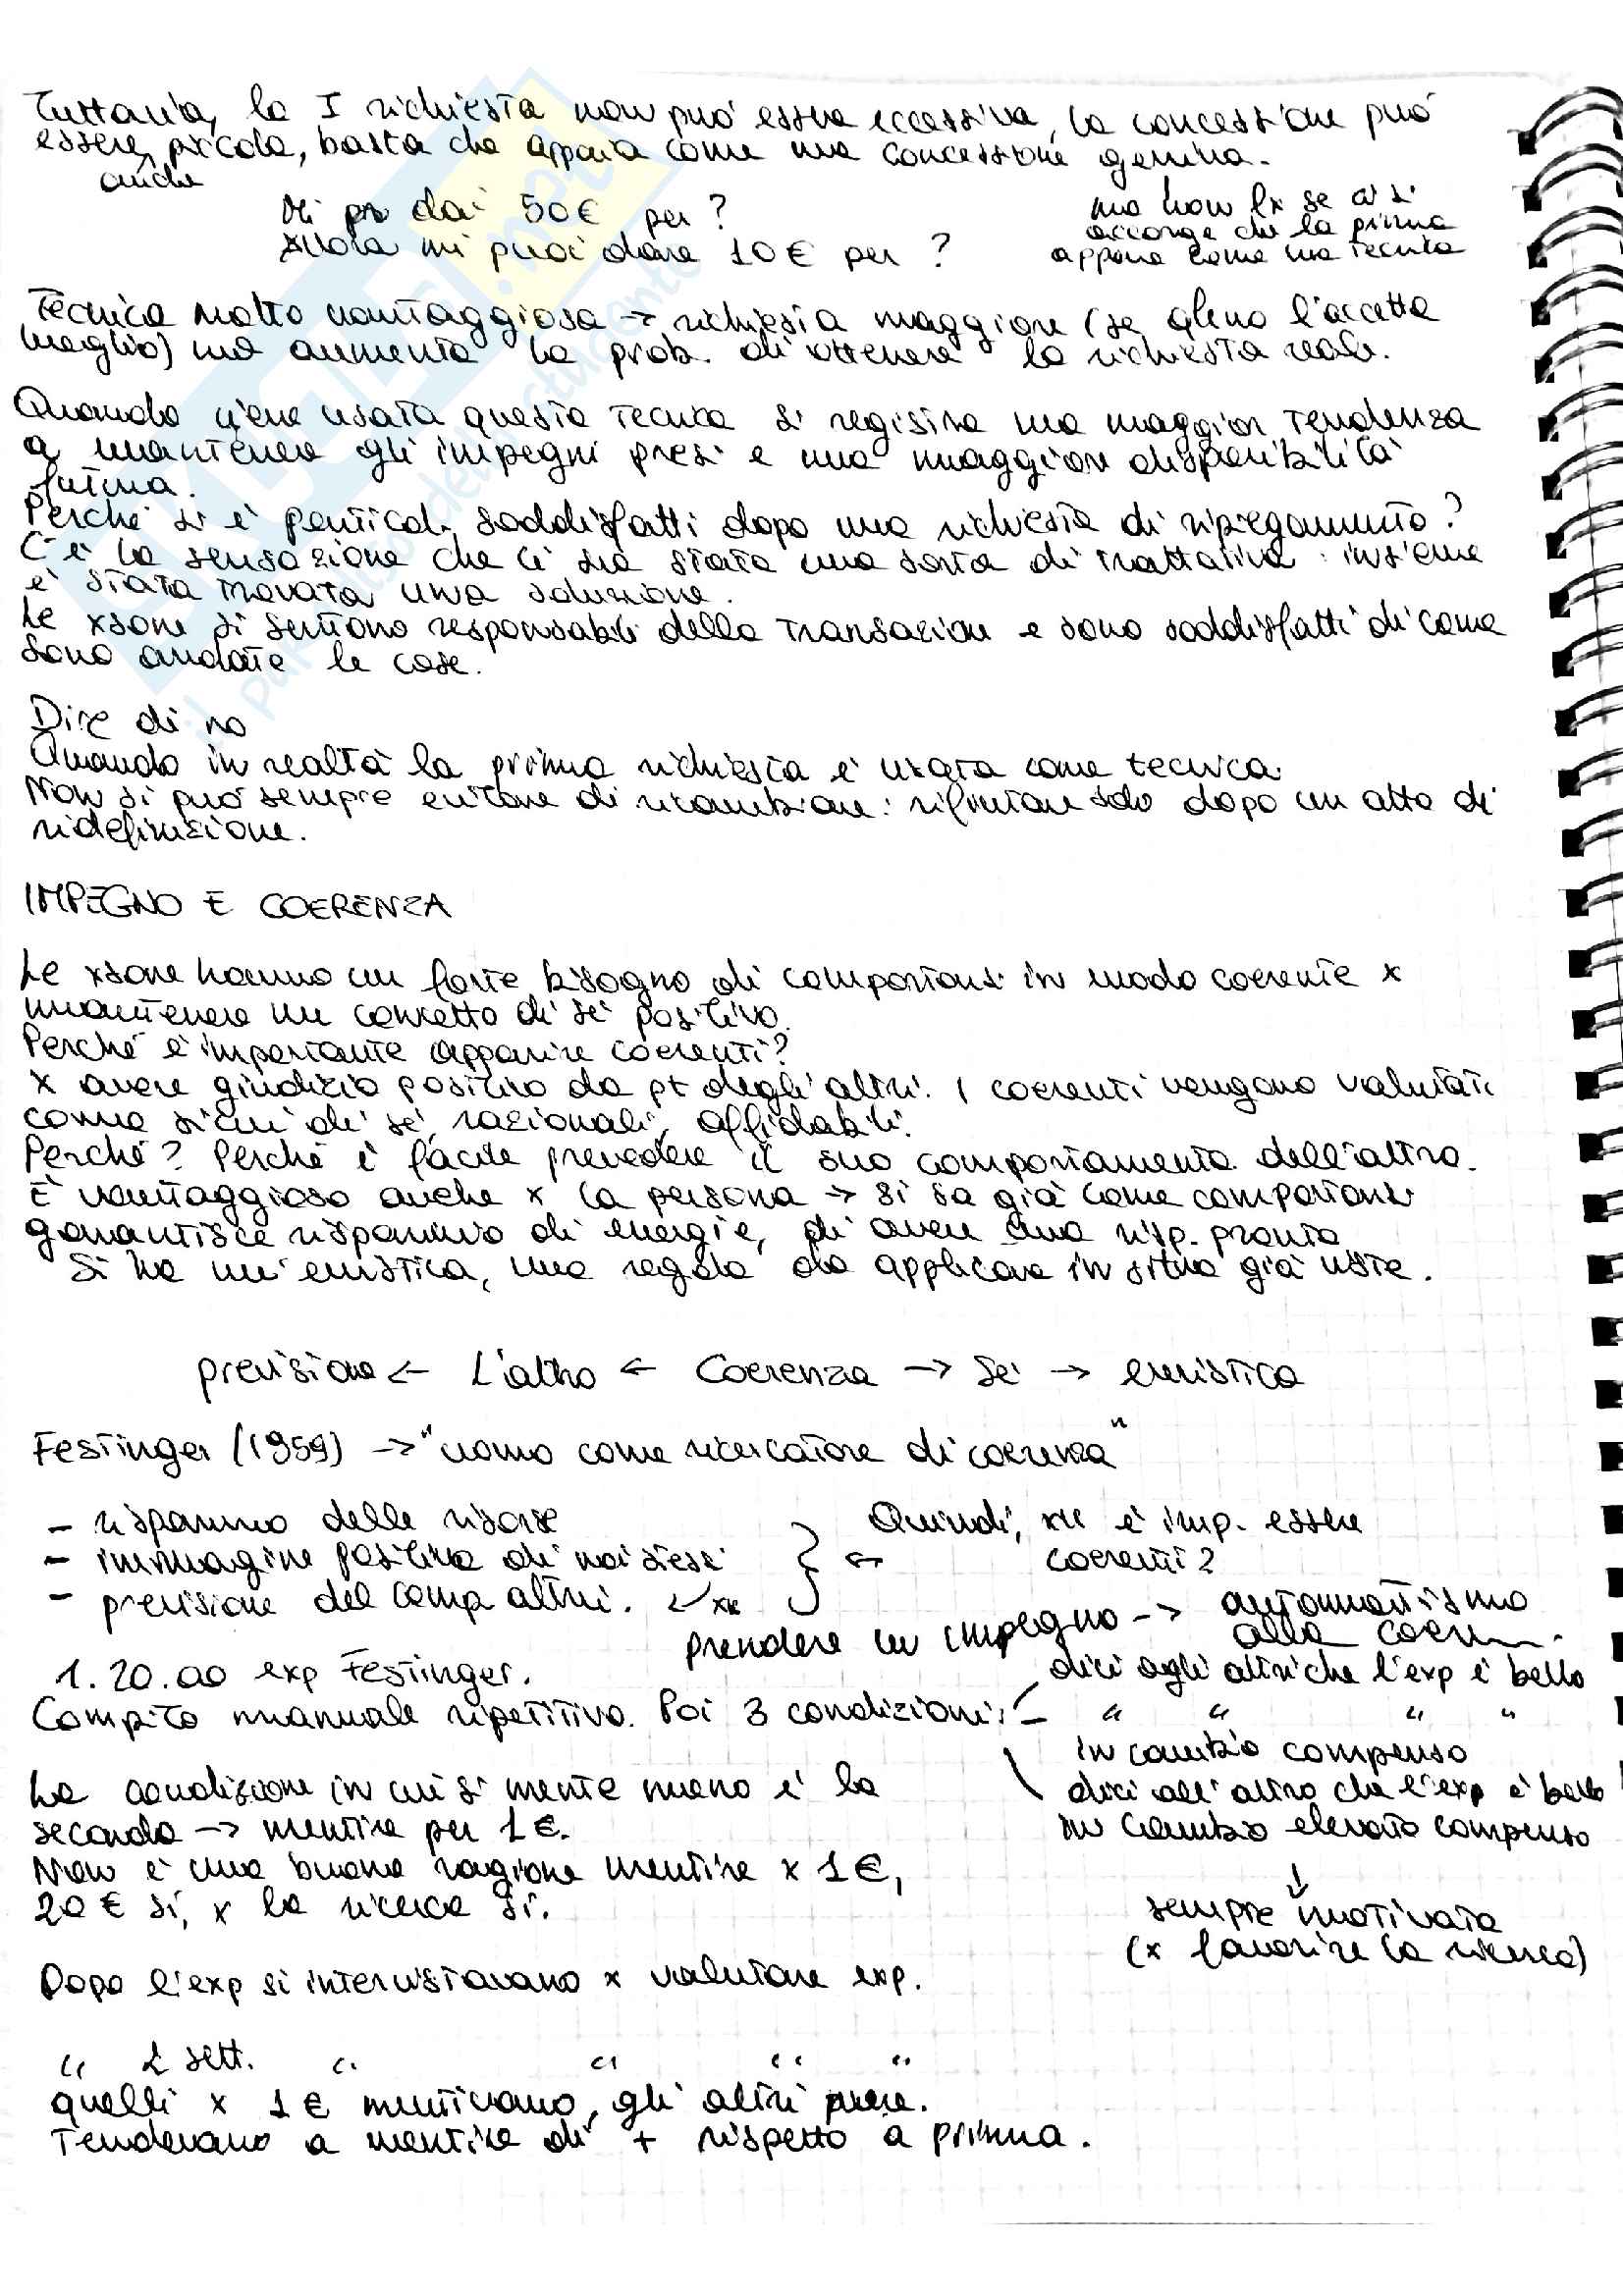 Tuttavia, la I richiesta non può essere eccessiva, la concessione può
essere, piccola, basta che appaia come una concessione genuina.
anche
Mi dai 50€ per ?
Allora mi puoi dare 10€ per ?
ma non se ci si
accorge che la prima
appare come una tecnica
Tecnica molto vantaggiosa → richiesta maggiore (se gliene l'accetta
meglio) ma aumenta la prob. di ottenere la richiesta reale.
Quando viene usata questa tecnica si registra una maggior tendenza
a mantenere gli impegni presi e una maggiore disponibilità
futura.
Perché si è particol. soddisfatti dopo una richiesta di ripiegamento?
C'è la sensazione che ci sia stata una sorta di trattativa: insieme
è stata trovata una soluzione.
Le xsone si sentono responsabili della transazione e sono soddisfatti di come
sono andate le cose.
Dire di no
Quando in realtà la prima richiesta è usata come tecnica.
Non si può sempre evitare di ricambiare: rifiutare solo dopo un atto di
ridefinizione.
IMPEGNO E COERENZA
Le xsone hanno un forte bisogno di comportarsi in modo coerente x
mantenere un concetto di sé positivo.
Perché è importante apparire coerenti?
x avere giudizio positivo da pt degli altri. I coerenti vengono valutati
come sicuri di sé, razionali, affidabili.
Perché? Perché è facile prevedere il suo comportamento dell'altro.
È vantaggioso anche x la persona → si sa già come comportarsi
garantisce risparmio di energie, di avere una risp. pronta
Si ha un'euristica, una regola da applicare in situa già viste.
previsione ← L'altro ← Coerenza → Sé → euristica
Festinger (1959) → "uomo come ricercatore di coerenza"
- risparmio delle risorse
- immagine positiva di noi stessi
- previsione del comp altrui.
Quindi, xké è imp. essere
coerenti?
prendere un impegno → automatismo
alla
1.20.00 exp Festinger.
Compito manuale ripetitivo. Poi 3 condizioni:
dici agli altri che l'exp è bello
" " " "
in cambio compenso
dici all'altro che l'exp è bello
in cambio elevato compenso
↓
sempre motivata
(x favorire la ricerca)
La condizione in cui si mente meno è la
seconda → mentire per 1€.
Non è una buona ragione mentire x 1€,
20€ sì, x la ricerca sì.
Dopo l'exp si intervistavano x valutare exp.
" 2 sett. " " " "
quelli x 1€ mentivano, gli altri
Tendevano a mentire di + rispetto a prima.